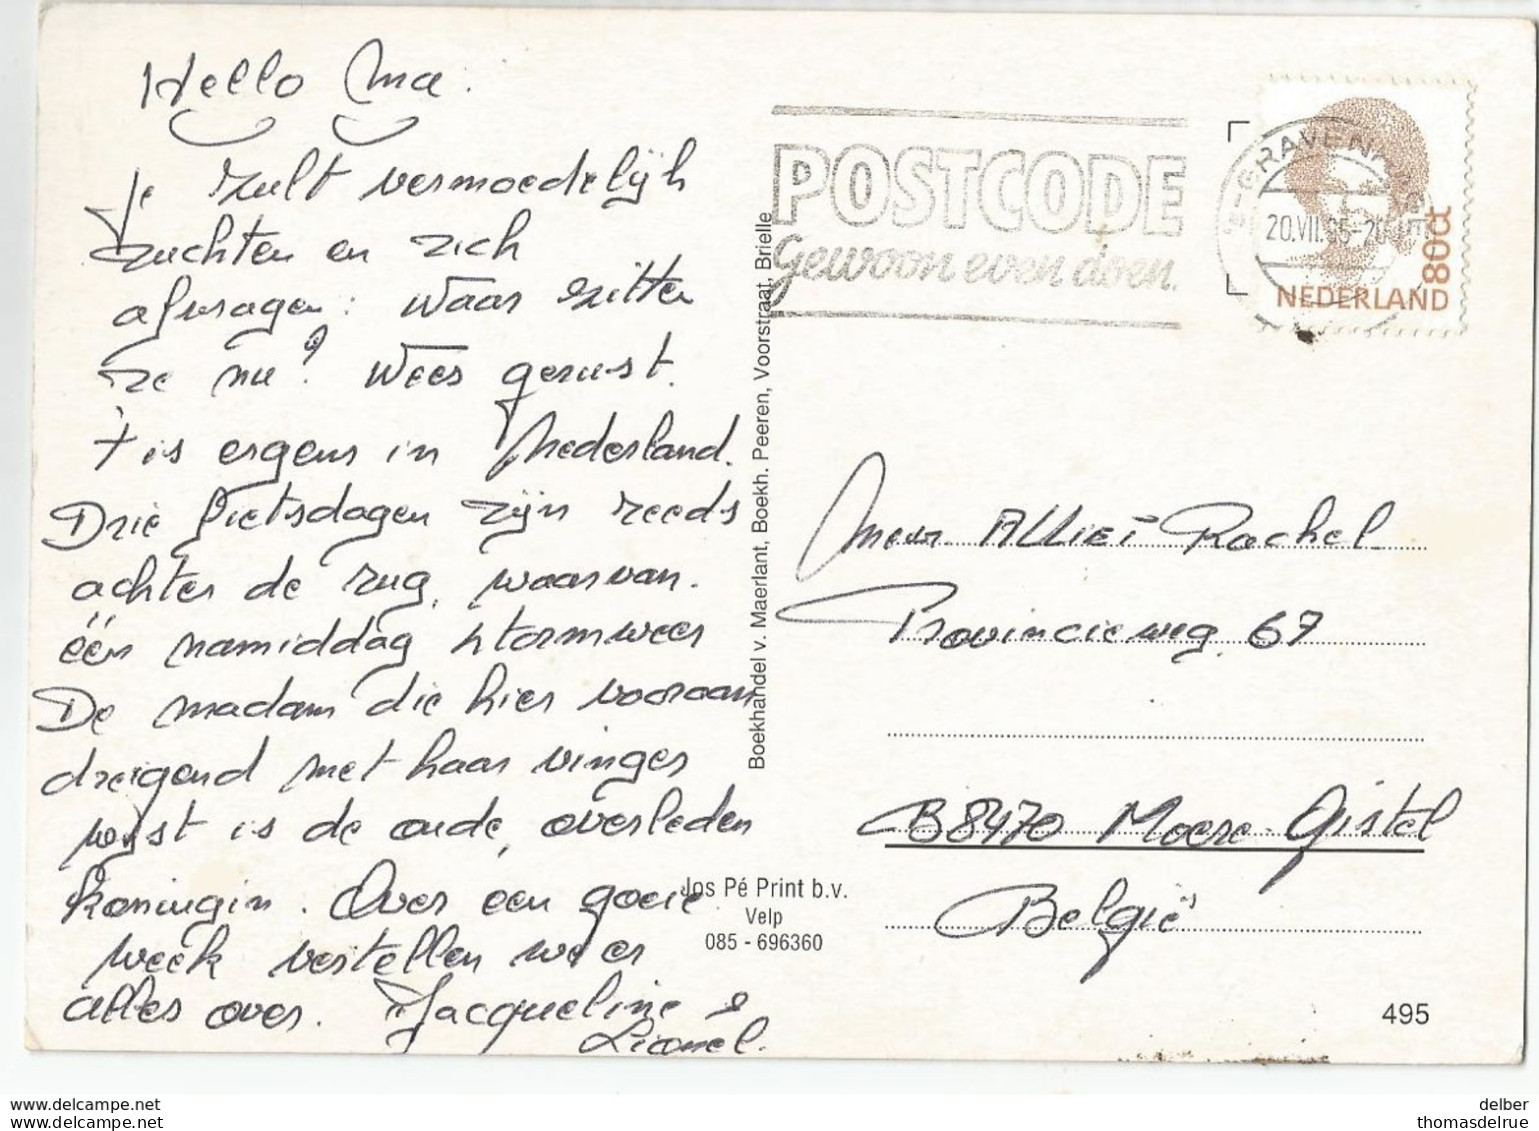 Hello Ma.
Je zult vermoedelijk
zuchten en zich
afvragen: waar zitten
ze nu? Wees gerust.
't is ergens in Nederland.
Drie fietsdagen zijn reeds
achter de rug, waarvan.
één namiddag stormweer
De madam die hier vooraan
dreigend met haar vinger
wijst is de oude, overleden
koningin. Over een goeie
week vertellen we er
alles over. Jacqueline &
Lionel.
Boekhandel v. Maerlant, Boekh. Peeren, Voorstraat, Brielle
Jos Pé Print b.v.
Velp
085 - 696360
POSTCODE
Gewoon even doen.
20.VII.
80ct
NEDERLAND
Mevr. ALLIET Rachel
Provincieweg. 67
B8470 Moere-Gistel
België
495
delber
delcampe.net
thomasdelrue